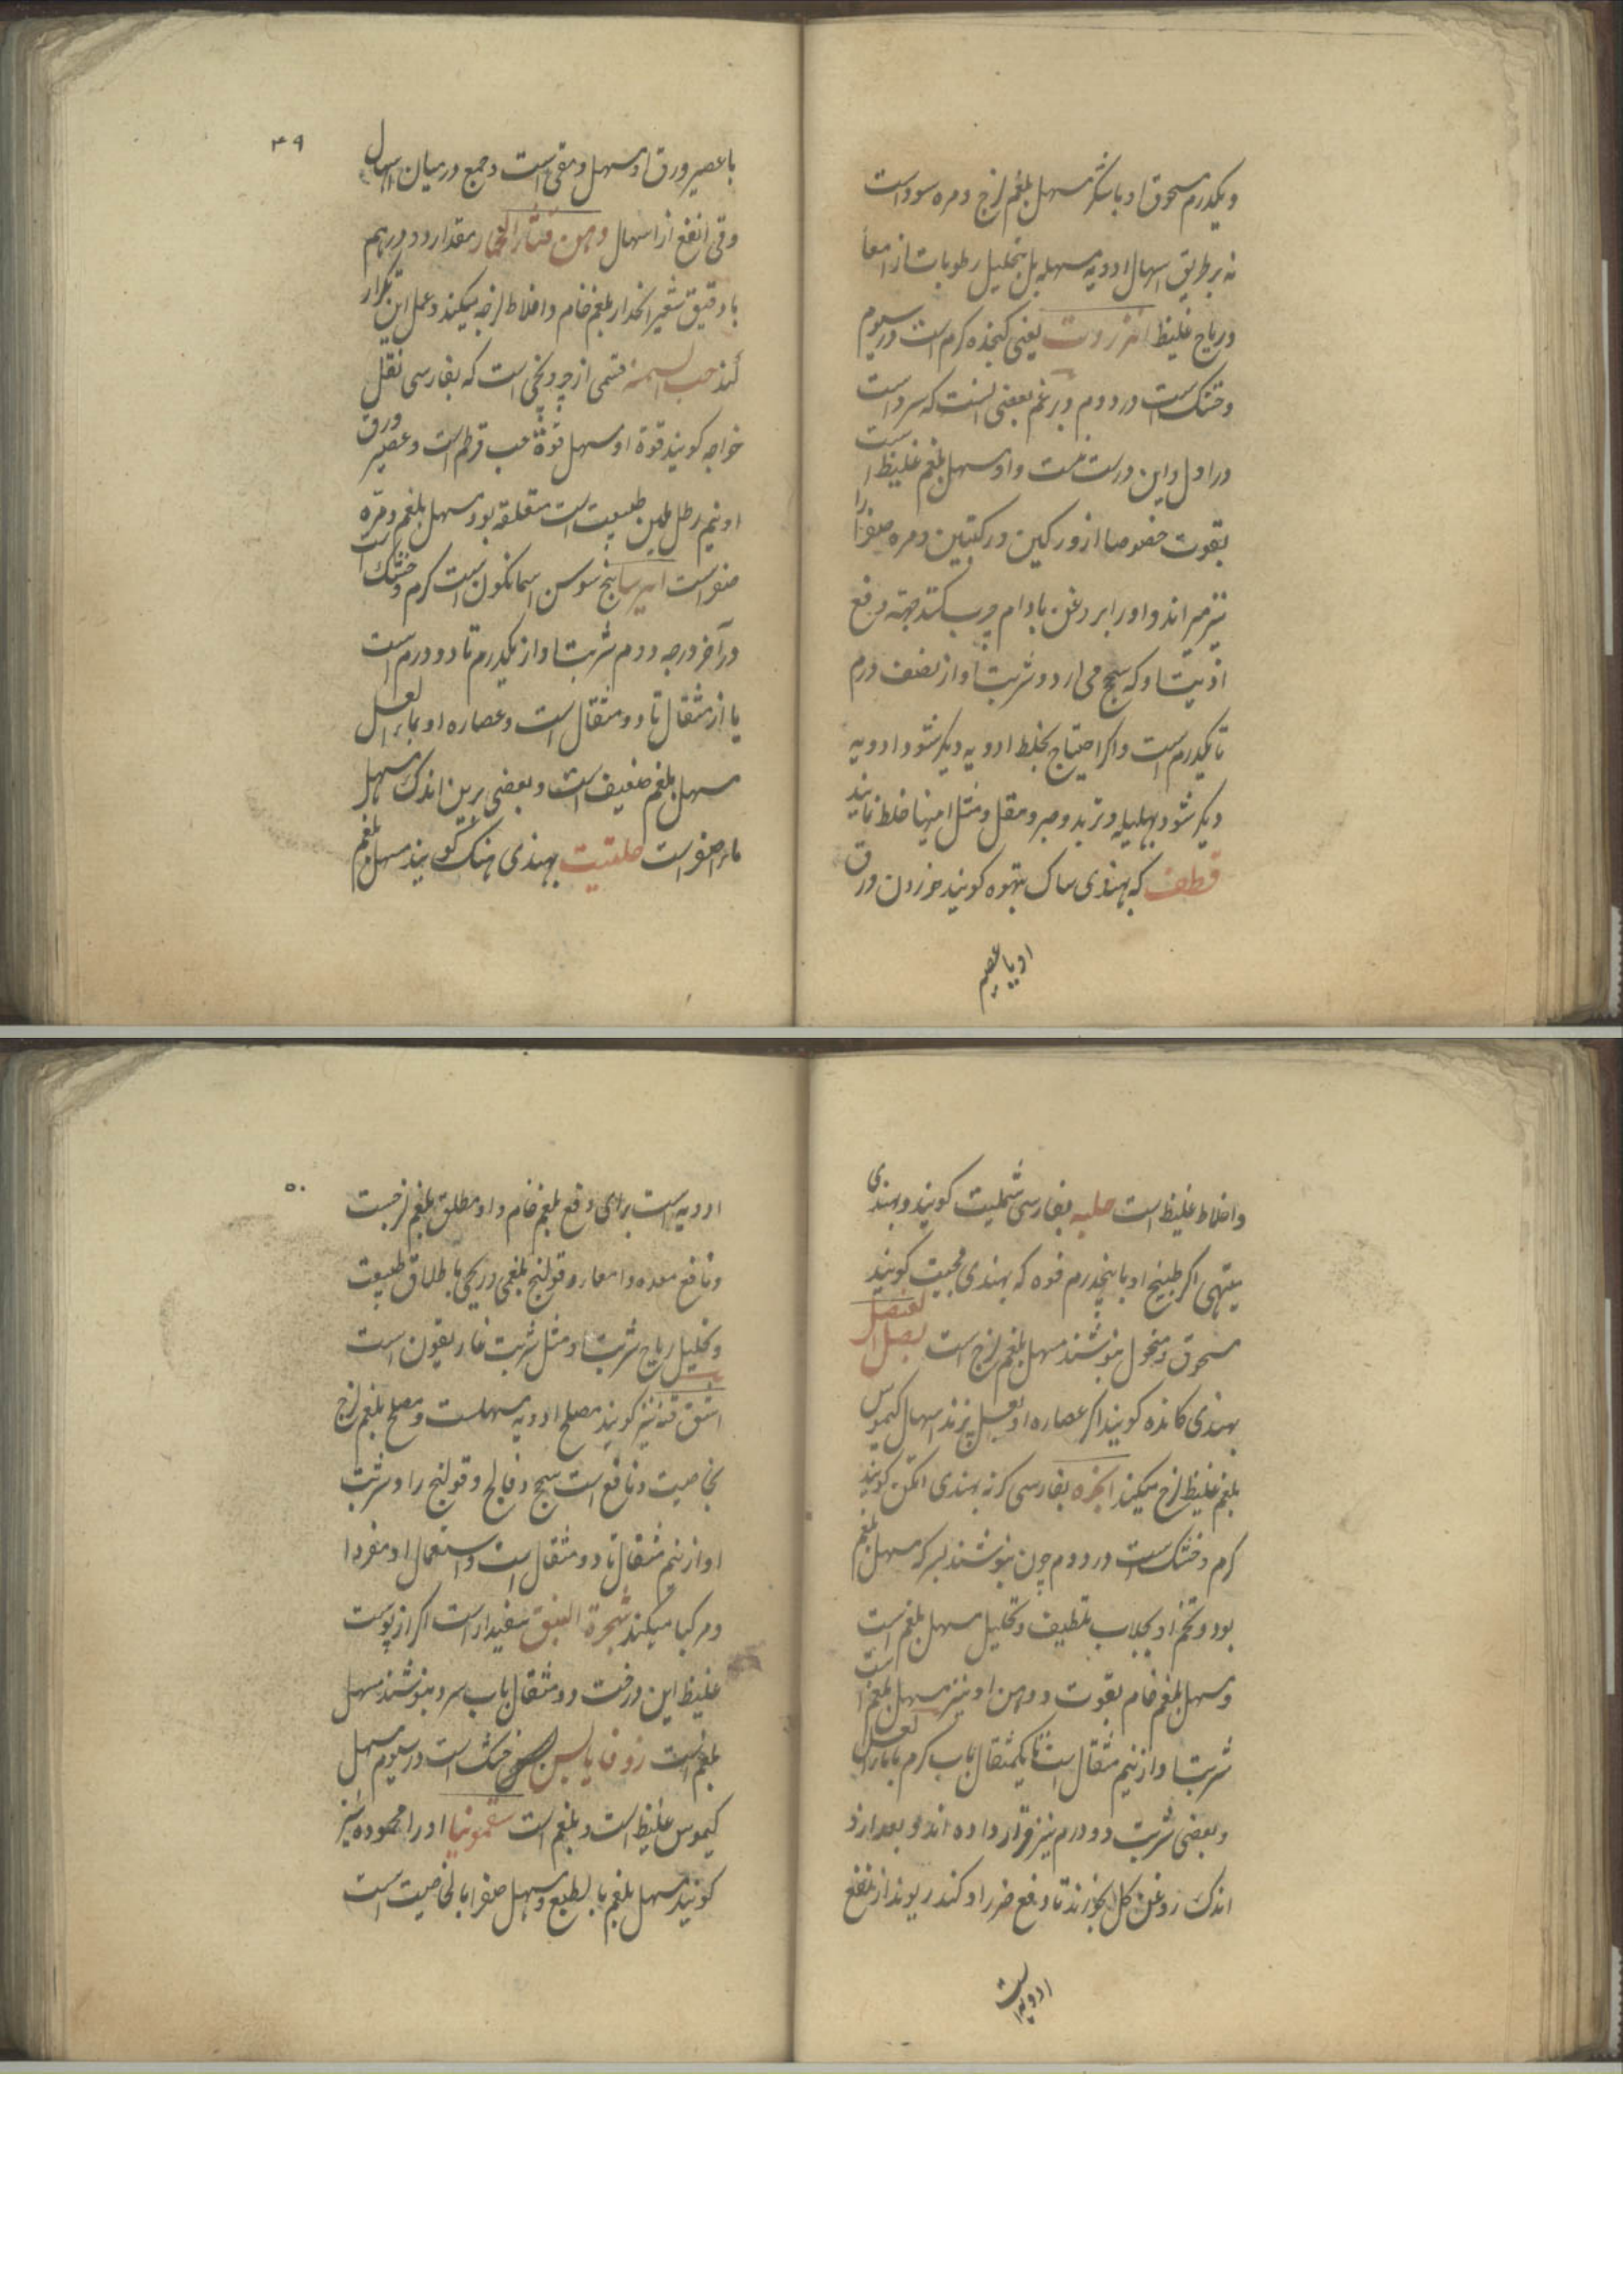 و یکدرم مسحوق او باشکر مسهل بلغم لزج و مره سوداست
نه بر طریق اسهال ادویه مسهله بل بتحلیل رطوبات از امعا
و ریاح غلیظ انزروت یعنی کنجده کرم است در سیوم
و خشک است در دوم و بزعم بعضی انست که سرد است
در اول و این درست نیست و او مسهل بلغم غلیظ است
بقوت خصوصا از ورکین و رکبتین و مره صفرا را
نیز میراند و او را بروغن بادام چرب کنند جهة دفع
اذیت او که سحج می آرد و شربت او از نصف درم
تا یکدرم است و اکر احتیاج بخلط ادویه دیکر شود ادویه
دیکر شود بهلیله و تربد و صبر و مقل و مثل اینها خلط نمایند
قطف که بهندی ساک بتهوه کویند خوردن ورق
او یا عصیر
۴۹
یا عصیر ورق او مسهل و مقی است و جمع در میان اسهال
و قی انفع از اسهال و دهن قثاء الحمار مقدار دو درهم
با دقیق شعیر انحدار بلغم خام و اخلاط لزجه میکند و عمل این بتکرار
کند حب السمنه قسمی از است که بفارسی نقل
خواجه کویند قوة او مسهل قوة حب قرطم است و عصیر ورق
او نیم رطل ملین طبیعت است معتقله بود مسهل بلغم و مره
صفراست ایرسا بیخ سوسن اسمانکون است کرم و خشک است
در آخر درجه دوم شربت او از یکدرم تا دو درم است
یا از مثقال تا دو مثقال است و عصاره او بماء العسل
مسهل بلغم ضعیف است و بعضی برین اندک مسهل
ماء اصفر است حلتیت بهندی هنک کویند مسهل بلغم
و اخلاط غلیظ است حلبه بفارسی شملیت کویند و بهندی
میتهی اکر طبیخ او با پنجدرم فوه که بهندی مجیت کویند
مسحوق و منخول بنوشند مسهل بلغم لزج است بصل العنصل
بهندی کانده کویند اکر عصاره او بعسل پزند اسهال کیموس
بلغم غلیظ لزج میکند انجره بفارسی کزنه بهندی کویند
کرم و خشک است در دوم چون بنوشند بسرکه مسهل بلغم
بود و تخم او بجلاب بتلطیف و تحلیل مسهل بلغم است
و مسهل بلغم خام بقوت و دهن او نیز مسهل بلغم است
شربت او از نیم مثقال است تا یکمثقال باب کرم یا بماء العسل
و بعضی شربت دو درم نیز قرار داده اند و بعد از و
اندک روغن کل بخورند تا دفع ضرر او کند ریوند از انفع
ادویه است
۵۰
ادویه است برای دفع بلغم خام و او مطلق بلغم لزجست
و نافع معده و امعا و قولنج بلغمی و ریحی باطلاق طبیعت
و تحلیل ریاح شربت او مثل شربت غاریقون است
اشق قنه نیز کویند مصلح ادویه مسهلست و مصلح بلغم لزج
بخاصیت و نافع است سحج و فالج و قولنج را و شربت
او از نیم مثقال تا دو مثقال است و استعمال او مفردا
و مرکبا میکند شجرة البق سفیدار است اکر از پوست
غلیظ این درخت دو مثقال باب سرد بنوشند مسهل
بلغم است زوفا یابس خشک است در سیوم مسهل
کیموس غلیظ است و بلغم است سقمونیا او را محموده نیز
کویند مسهل بلغم بالطبع و مسهل صفرا بالخاصیت است